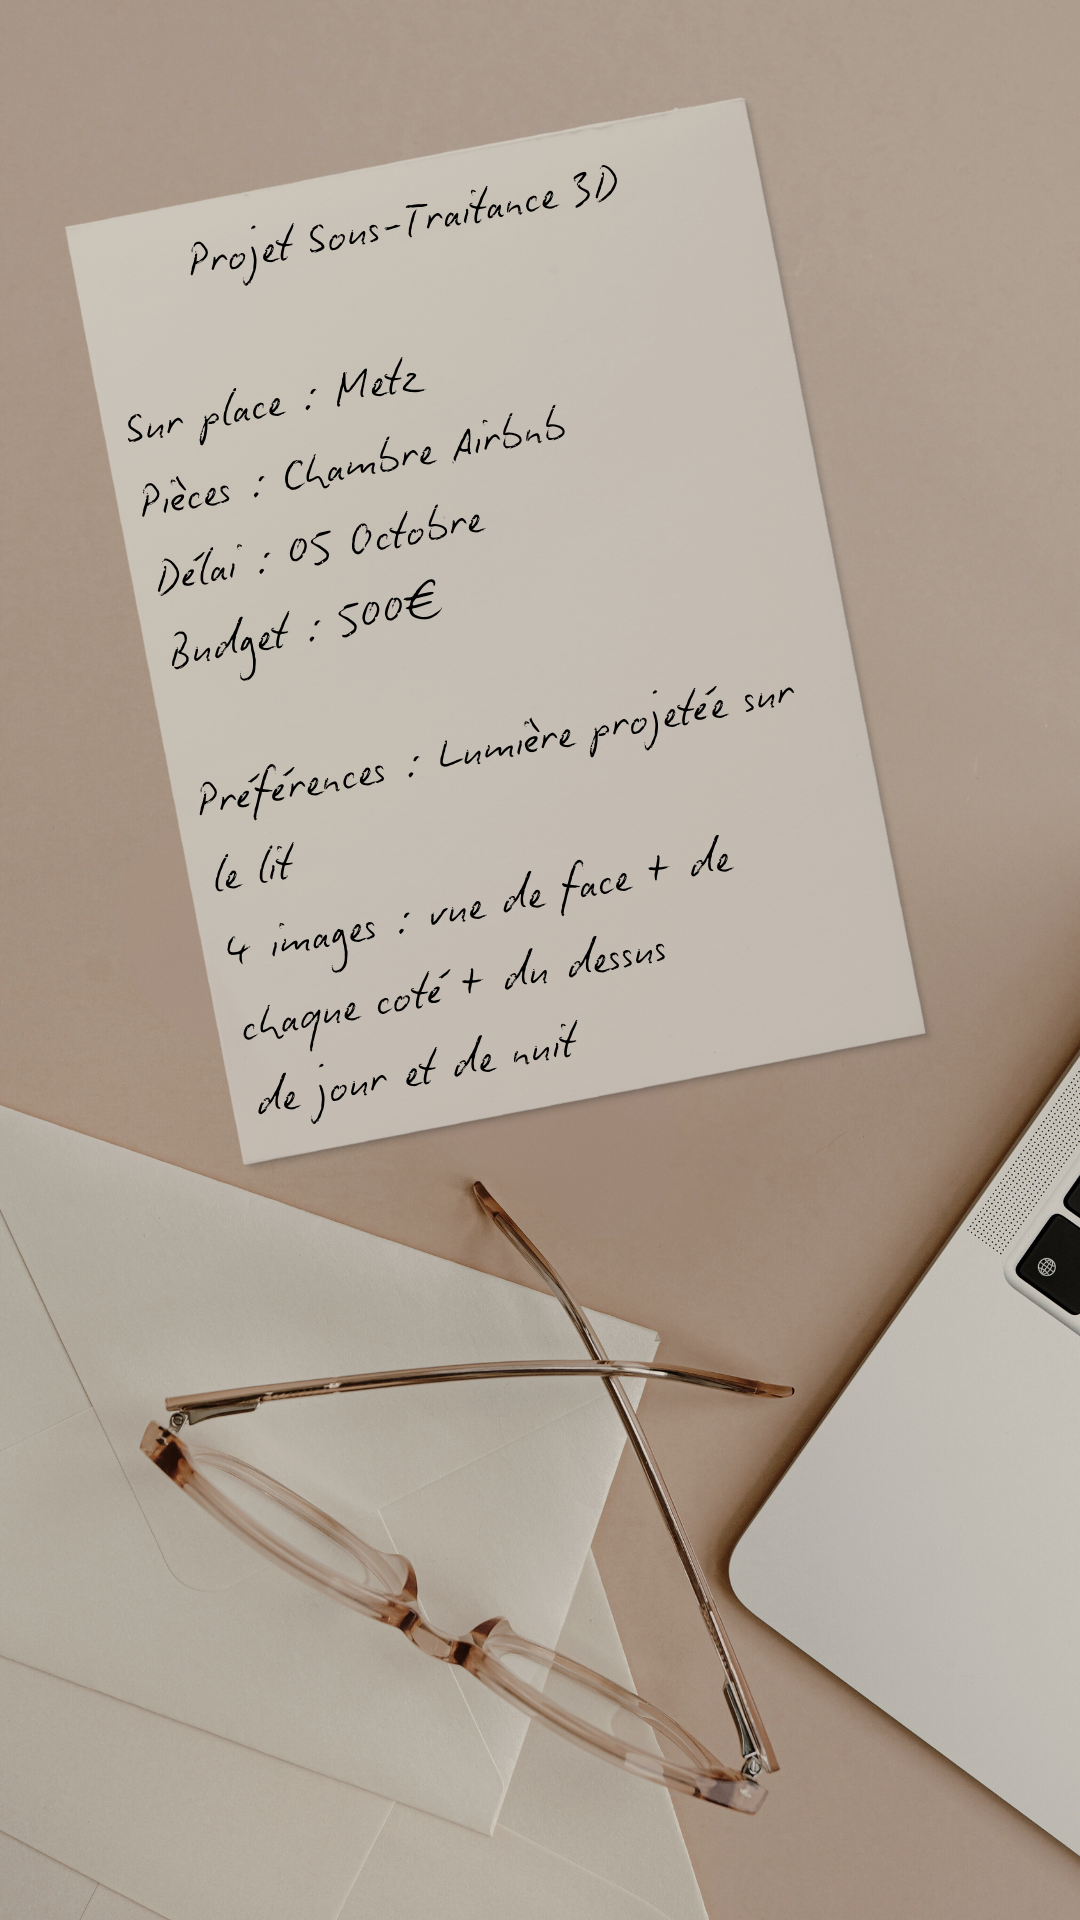 Projet Sous-Traitance 3D
Sur place : Metz
Pièces : Chambre Airbnb
Délai : 05 Octobre
Budget : 500€
Préférences : Lumière projetée sur
le lit
4 images : vue de face + de
chaque coté + du dessus
de jour et de nuit